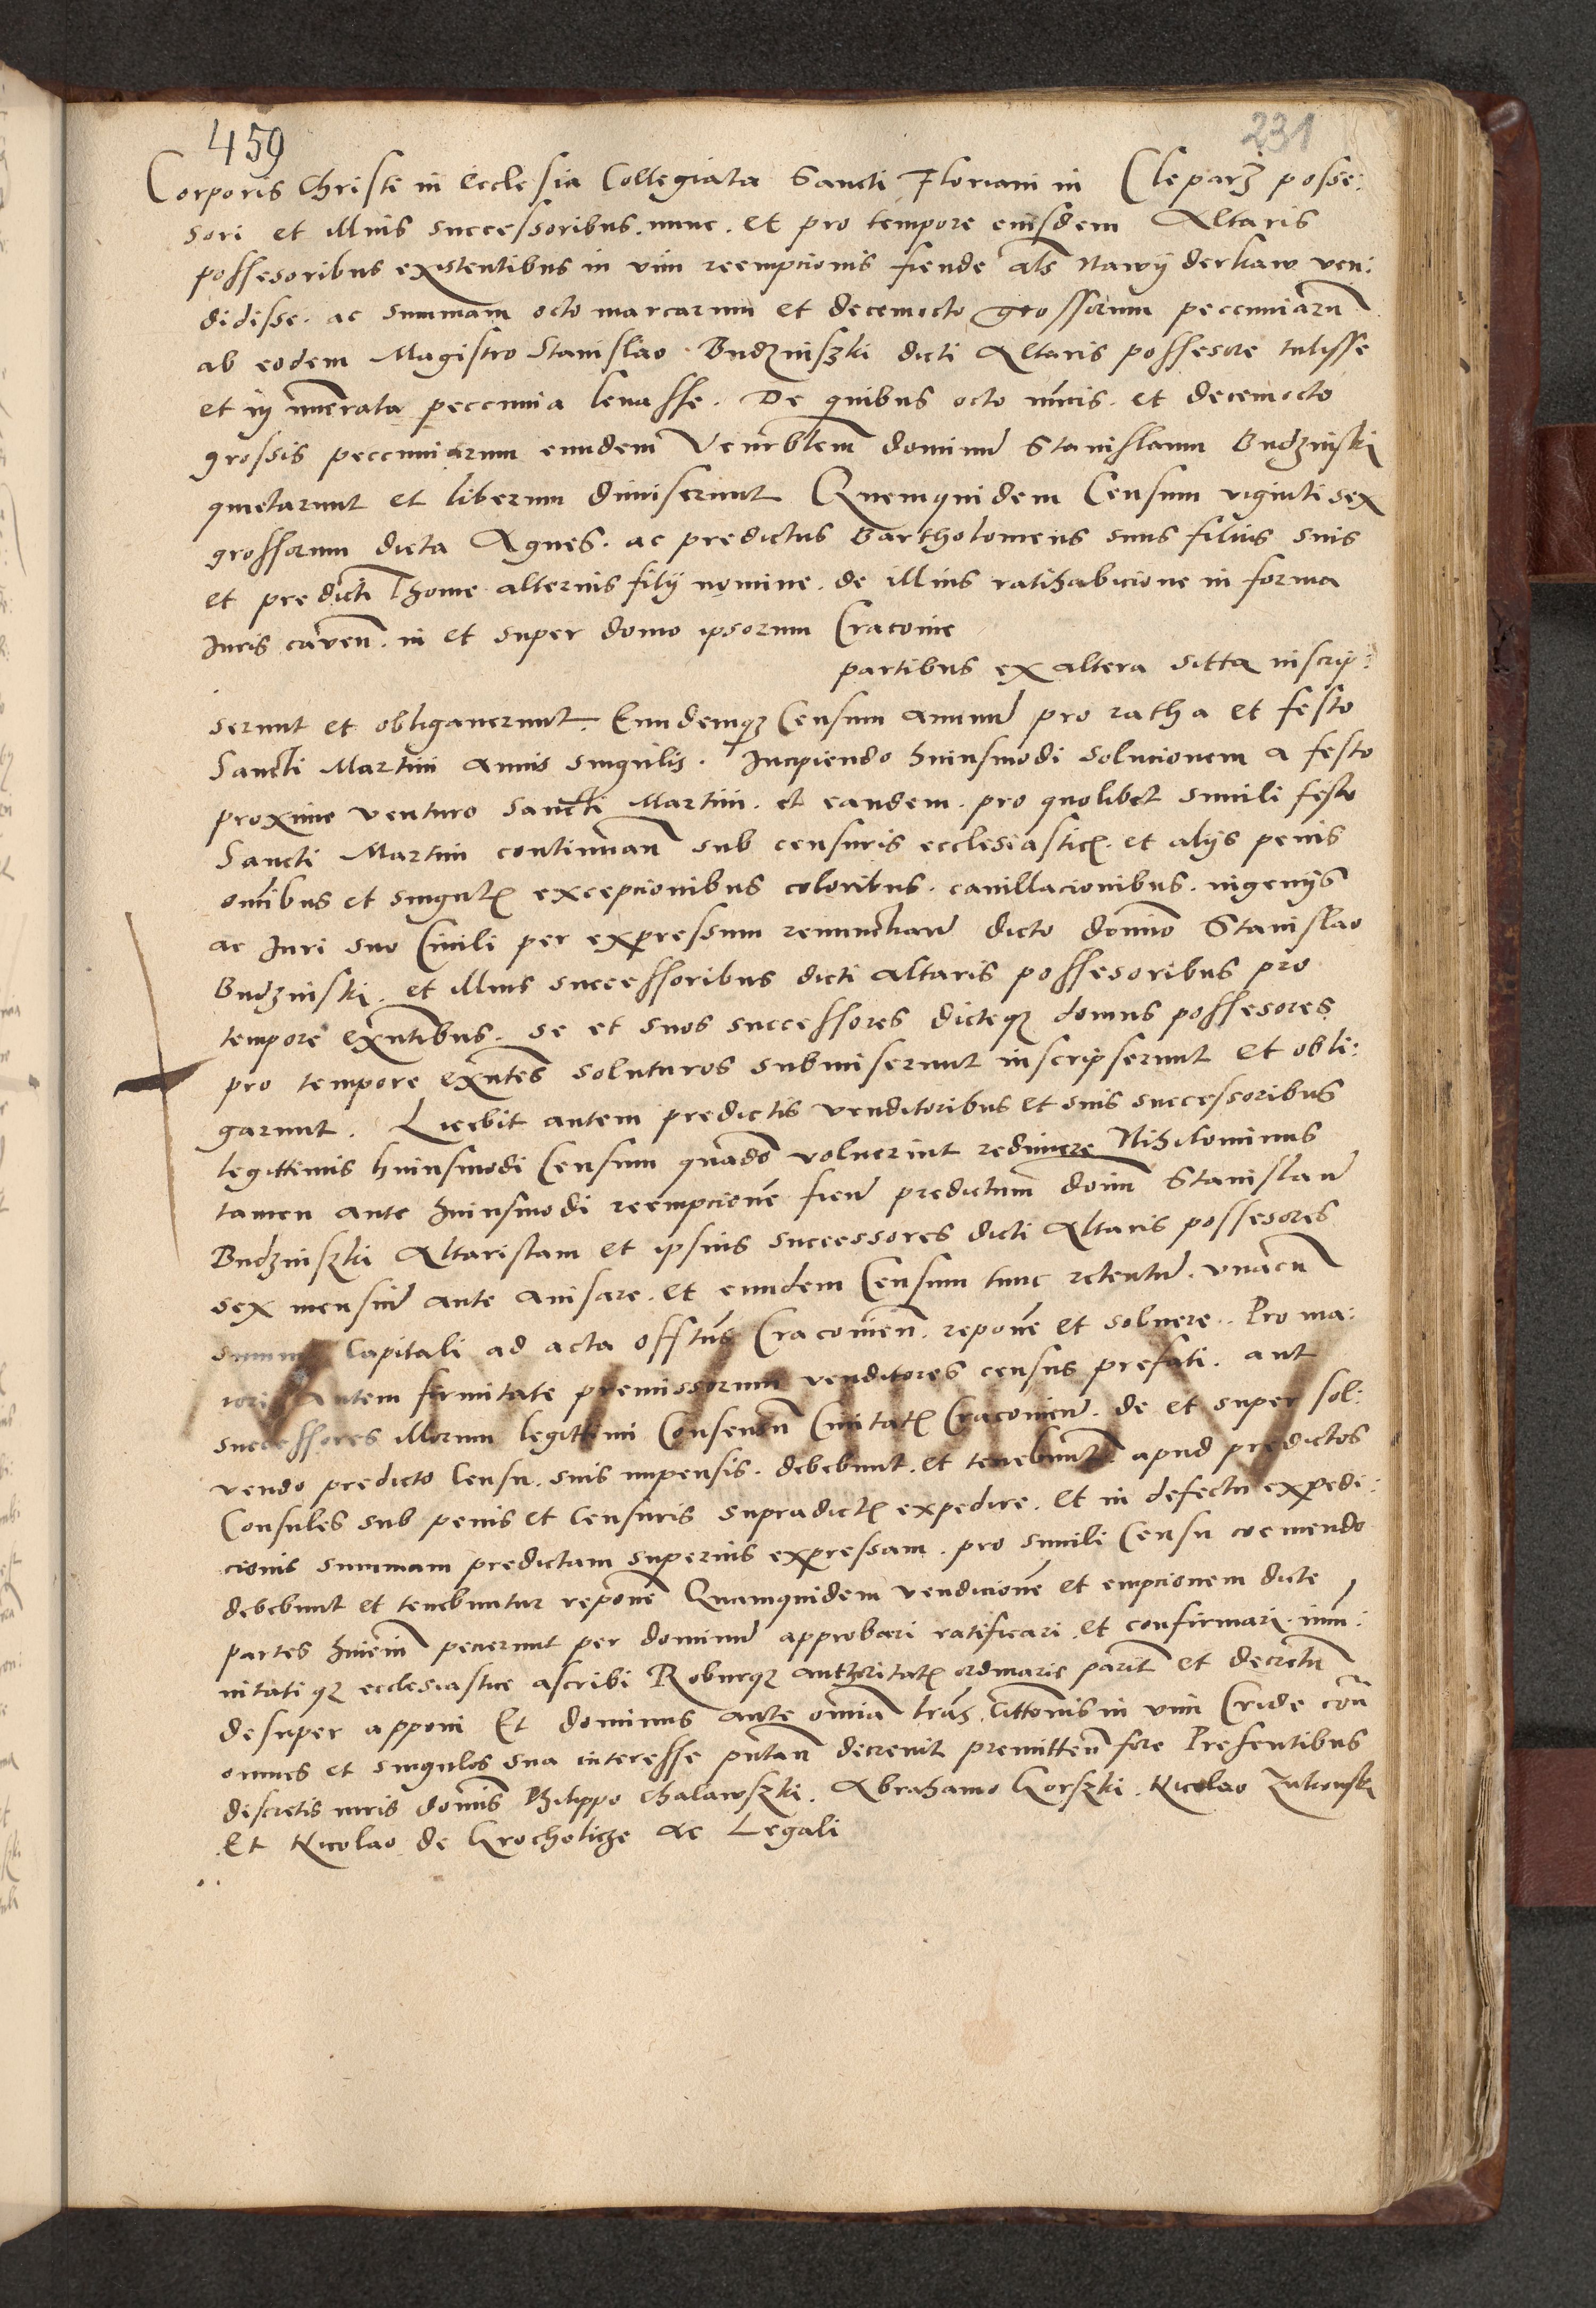 459
231
Corporis Christi in Ecclesia Collegiata Sancti Floriani in Cleparz posse:
sori et illius successoribus. nunc. et pro tempore eiusdem Altaris
possesoribus existentibus in vim reempcionis fiende als Nawÿ derkaw ven:
didisse. ac summam octo marcarum et decemocto grossorum peccuniarũ
ab eodem Magistro Stanislao Budzinszki dicti Altaris possesore tulisse
et in nũerata peccunia levasse. De quibus octo mrcis. et decemocto
grossis peccuniarum eundem Venerblem dominũ Stanislaum Budzinski
quietarunt et liberum dimiserunt Quemquidem Censum viginti sex
grossorum dicta Agnes. ac predictus Bartholomeus suus filius suis
et predicti Thome alterius filij nomine. de illius ratihabicione in forma
Iuris caven̄. in et super domo ipsorum Cracovie
partibus ex altera sitta inscrip:
serunt et obligaverunt. Eundemqz Censum annuũ pro ratha et festo
Sancti Martini annis singulis. Incipiendo huiusmodi solucionem a festo
proxime venturo Sancti Martini. et eandem. pro quolibet simili festo
Sancti Martini continuan̄ sub censuris ecclesiastic. et alijs penis
om̄ibus et singul excepcionibus coloribus. cavillacionibus. ingenijs
ac Iuri suo Civili per expressum renunctian̄ dicto domĩo Stanislao
Budzinski. et illius successoribus dicti altaris possesoribus pro
tempore exn̄tibus. se et suos successores dicteqz domus possesores
pro tempore exn̄tes soluturos submiserunt inscripserunt et obli:
garunt. Licebit autem predictis venditoribus et suis successoribus
legittimis huiusmodi Censum quãdo voluerint redimere Nihilominus
tamen ante huiusmodi reempcionẽ fien̄ predictum domĩ Stanislaũ
Budzinszki Altaristam et ipsius successores dicti Altaris possesores
sex mensiũ ante avisare. et eundem Censum tunc retentũ. unacũ
summa Capitali ad acta offitus Cracovien̄. reponẽ et solvere. Pro ma:
iori autem firmitate premissorum venditores census prefati. aut
successores illorum legittimi Consensũ Civitat Cracovien̄. de et super sol:
vendo predicto Censu. suis impensis. debebunt. et tenebunt apud predictos
Consules sub penis et Censuris supradict expedire. et in defectu expedi:
cionis summam predictam superius expressam. pro simili Censu coemendo
debebunt et tenebuntur reponẽ Quamquidem vendicionẽ et empcionem dicte
partes huiem̄ petierunt per dominũ approbari ratificari. et confirmari. imũ:
nitatiqz ecclesiastice ascribi Roburqz authoritat ordinarie parit et decretũ
desuper apponi Et dominus ante om̄ia trãs in vim Cride con̄
omnes et singulos sua interesse putan̄ decrevit premitten̄ fore Presentibus
discretis viris domĩs Philippo Chalawszki. Abrahamo Gorszki. Nicolao Zukowski
Et Nicolao de Grocholicze ac Legali